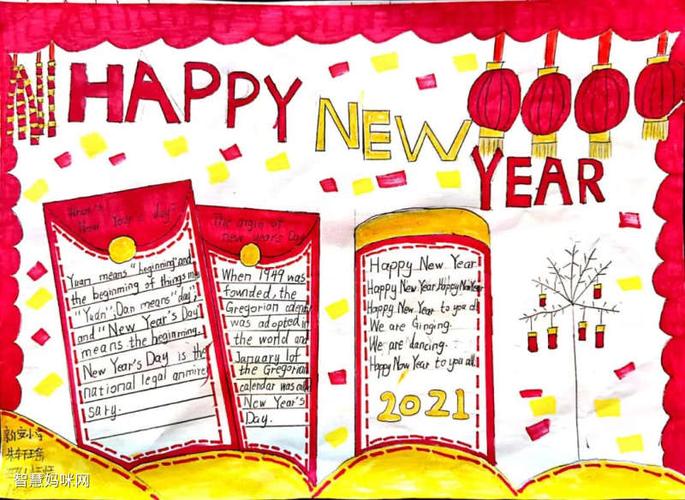 HAPPY
NEW
YEAR
New Year's day
The origin of
new year's Day
Yuan means "beginning" and
the beginning of things
"Yuan", Dan means "day",
and "New Year's Day
means the beginning.
New Year's Day is the
national legal
sary.
When 1949 was
founded, the
Gregorian
was adopted in
the world and
January 1 of
the Gregorian
calendar was
New Year's
Day.
Happy New Year
Happy New Year Happy New Year
Happy New Year to you all
We are Ginging.
We are dancing.
Happy New Year to you all.
2021
智慧妈咪网